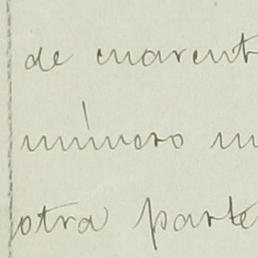 de cuarent
número
otra parte